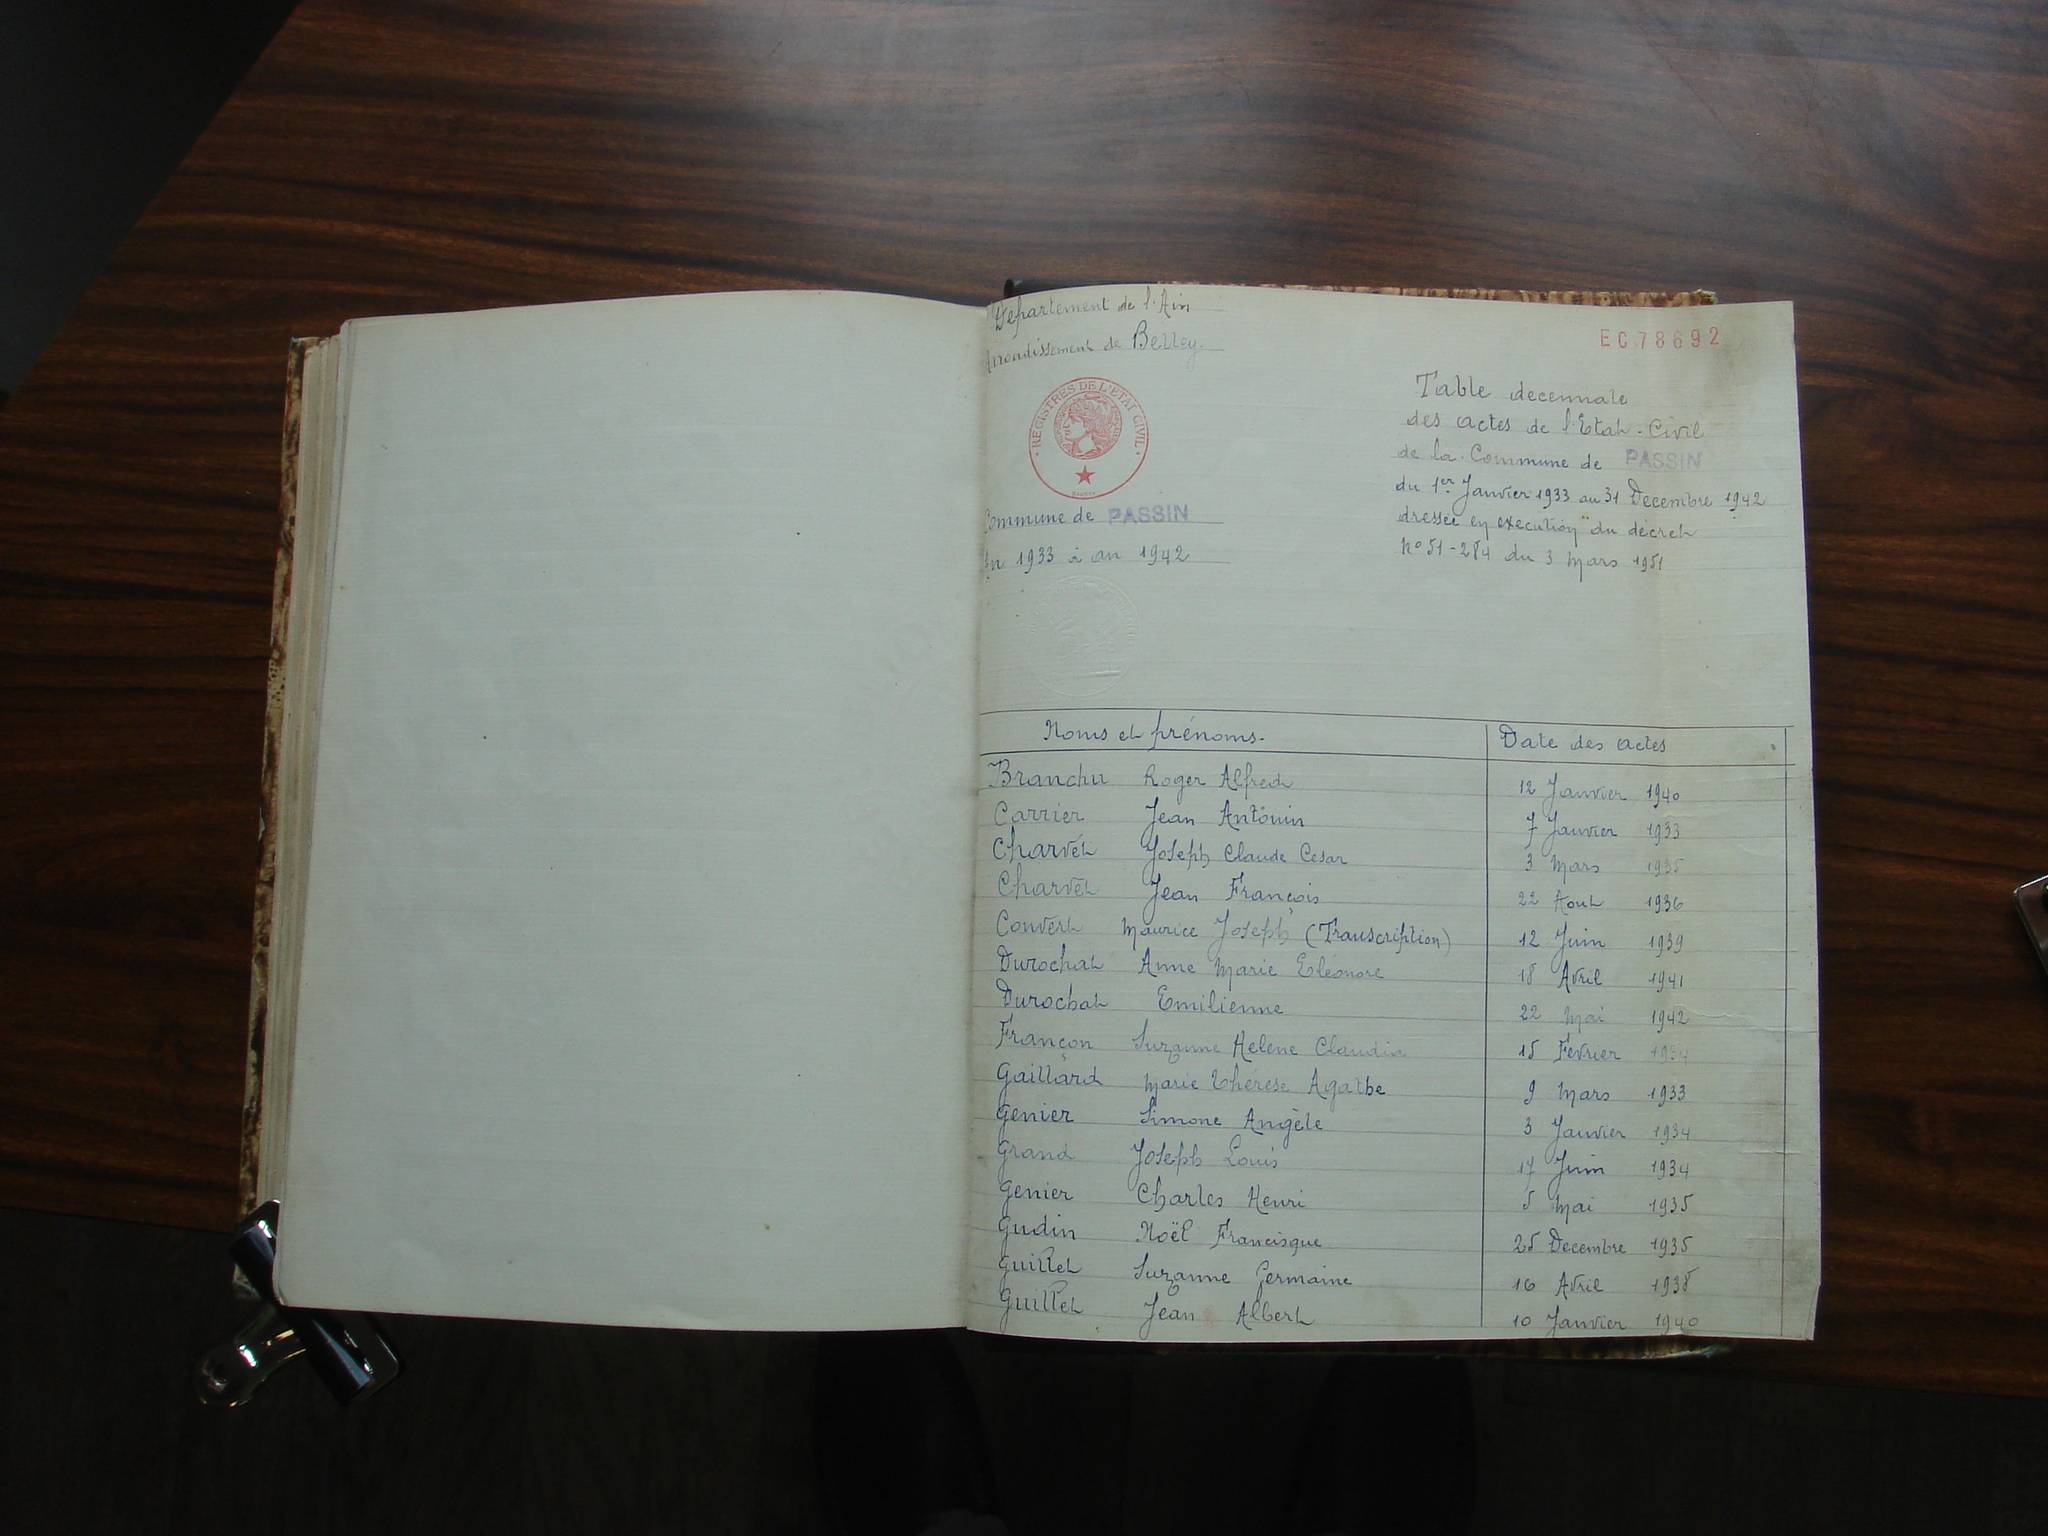 Departement de l'Ain
Arrondissement de Belley.
EC 78692
REGISTRES DE L'ETAT CIVIL
Table decennale
des actes de l'Etat-Civil
de la Commune de PASSIN
du 1er Janvier 1933 au 31 Decembre 1942
dressée en execution du décret
No 51-284 du 3 Mars 1951
Commune de PASSIN
An 1933 à an 1942
Noms et prénoms. Date des actes
Branchu Roger Alfred 12 Janvier 1940
Carrier Jean Antonin 7 Janvier 1933
Charvet Joseph Claude Cesar 3 Mars 1935
Charvet Jean François 22 Aout 1936
Convert Maurice Joseph (Transcription) 12 Juin 1939
Durochat Anne Marie Eléonore 18 Avril 1941
Durochat Emilienne 22 Mai 1942
Françon Suzanne Helene Claudia 15 Fevrier 1934
Gaillard Marie Thérese Agathe 9 Mars 1933
Genier Simone Angèle 3 Janvier 1934
Grand Joseph Louis 17 Juin 1934
Genier Charles Henri 5 Mai 1935
Gudin Noël Francisque 25 Decembre 1935
Guillet Suzanne Germaine 16 Avril 1938
Guillet Jean Albert 10 Janvier 1940